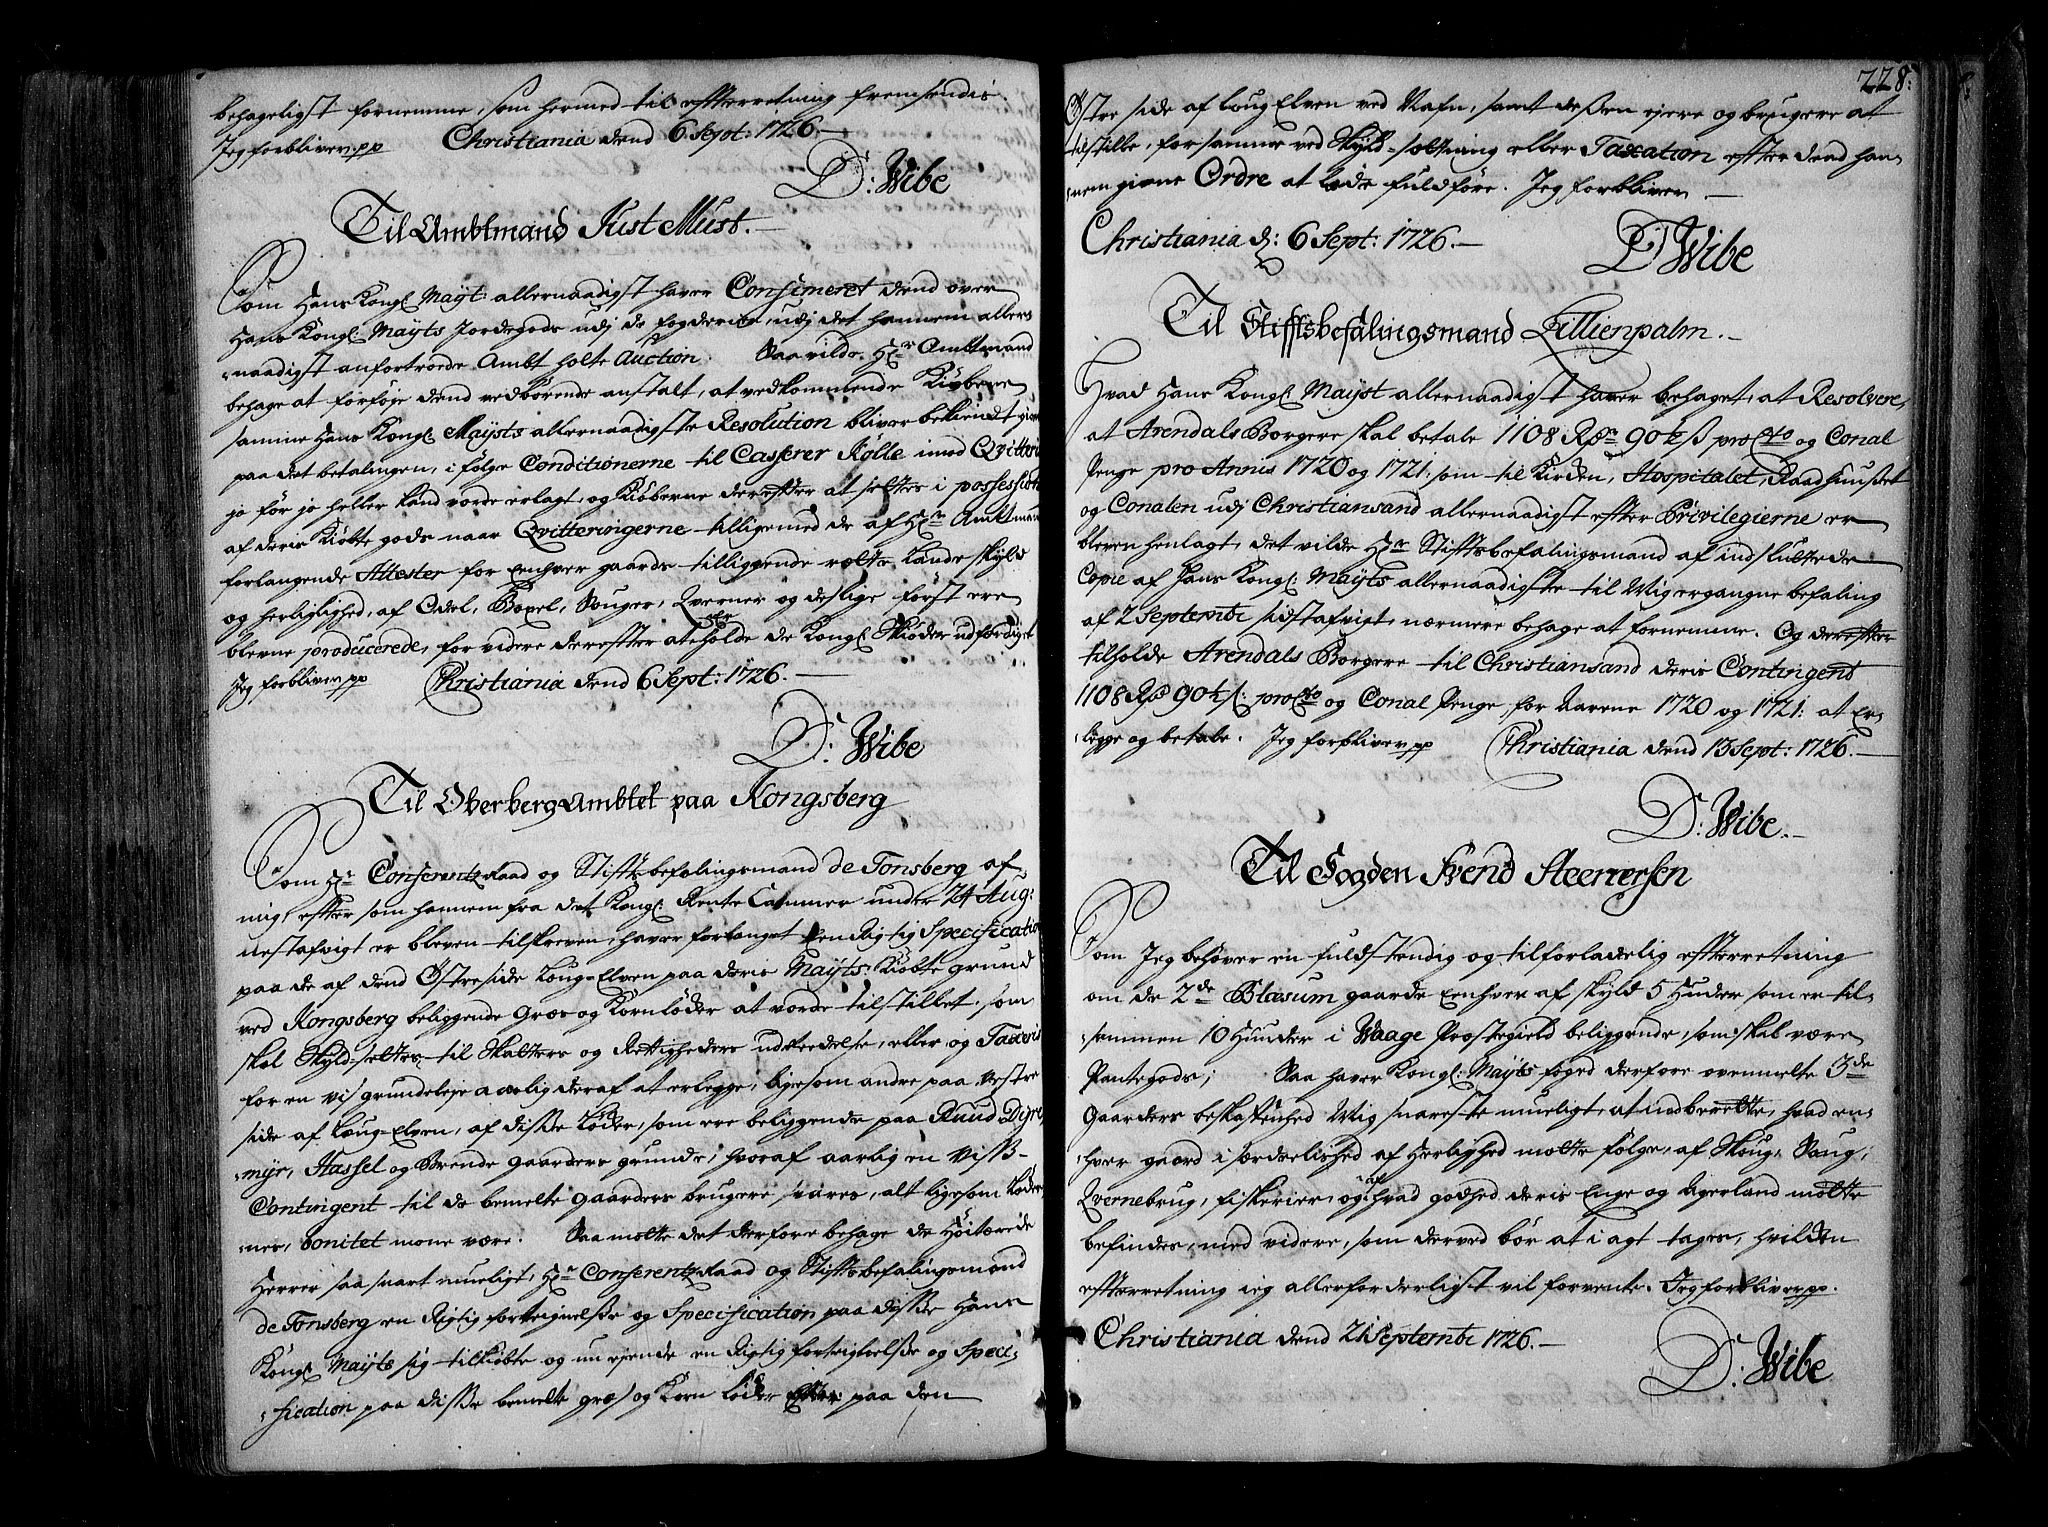 behageligst fornemme, som hermed til efterretning fremsendis.
Jeg forbliver pp Christiania dend 6 Sept: 1726.
D: Wibe
Til Ambtmand Just Must.
Som Hans Kongl. Mayt: allernaadigst haver Confimeret dend over
Hans Kongl. Mayts Jordegods udj de fogderier, udj det hannem aller-
naadigst anfortroede Ambt holte Auction. Saa vilde Hr. Ambtmand
behage at forføge dend vedbørende anstalt, at vedkommende Kiøbere
samme Hans Kongl. Mayts allernaadigste Resolution bliver bekiendt giort
paa det betalingen, i følge Conditionerne til Casserer Kølle imod Qvittering
jo før jo heller kand vorde erlagt, og Kiøberne derefter at settes i possession
af deris Kiøbte gods naar Qvitteringerne tilligemed de af Hr. Amtmand
forlangende Attester for Eenhver gaards tilliggende rette Landskyld
og herliglighed, af Odel, Bøxel, Sauger, Qverner og deslige først ere
blevne producerede, for videre derefter at eholde de Kongl. Skiøder udferdiget
Jeg forbliver pp Christiania dend 6 Sept: 1726.
D: Wibe
Til OberbergAmbtet paa Kongsberg
Som Hr. ConferentzRaad og Stiftsbefalingsmand de Tonsberg af
mig, efter som hannem fra det Kongl. Rente Cammer under 24 Aug:
nestafvigt er bleven tilskreven, haver forlanget Een Rigtig Specification
paa de af dend Østre side Loug-Elven paa deris Mayts: Kiøbte grund
ved Kongsberg beliggende Græs og Kornløder at vorde tilstillet, som
skal Skyld-settes til Skatters og Rettigheders udreedelse, eller og Taxeris
for en vis grundeleje aarlig deraf at erlegge, ligesom andre paa Vestre
side af Loug-Elven, af disse Løder, som ere beliggende paa Ruud Dyre-
myr, Hassel og Brende gaarders grunde, hvoraf aarlig en Viss-
Contingent til de bemelte gaarders brugere svares, alt ligesom Løder-
nes, bonitet mone være. Saa motte det derfore behage de Høitærede
Herrer saa snart mueligt, Hr. ConferentzRaad og Stiftsbefalingsmand
de Tonsberg en Rigtig fortegnelse og Specification paa disse Hans
Kongl. Mayts sig tilkiøbte og nu ejende en Rigtig forteignelse og Speci-
fication paa disse bemelte græs og Korn Løder paa den
228.
Østre side af Loug Elven ved Nafn, samt dessen ejere og brugere at
tilstille, for samme ved Skyld-setning eller Taxation efter dend han-
nem givne Ordre at lade fuldføre. Jeg forbliver
Christiania d: 6 Sept: 1726.
D Wibe
Til Stifftsbefalingsmand Lillienpalm.
Hvad Hans Kongl. Mayst allernaadigst haver behaget, at Resolvere,
at Arendals Borgere skal betale 1108 Rdr 90½ s pro Cto og Conal
Penge pro Annis 1720 og 1721: som til Kirken, Hospitalet, Raadhuuset
og Conalen udj Christiansand allernaadigst efter Privilegierne er
bleven henlagt, det vilde Hr. Stiftsbefalingsmand af indsluttede
Copie af Hans Kongl. Mayts allernaadigste til Mig ergangne befaling
af 2 Septembr sidstafvigt, nærmere behage at fornemme. Og derefter
tilholde Arendals Borgere til Christiansand deris Contingent
1108 Rd 90½ s: pro Cto og Conal Penge for Aarene 1720 og 1721: at Er-
legge og betale. Jeg forbliver pp Christiania dend 13 Sept: 1726.
D: Wibe.
Til Fogden Svend Steenersen
Som Jeg behøver en fuldstendig og tilforladelig efterretning
om de 2de Blæsum gaarde Eenhver af skyld 5 Huder som er til-
sammen 10 Hunder i Waage Prestegield beliggende, som skal være
Pantegods; Saa haver Kongl. Mayts foged derfore ovenmelte 3de
Gaarders beskafenhed Mig snareste mueligt, at indberette, hvad en-
hver gaard i særdeelished af Herlighed motte følge, af Skoug, Saug,
Qvernebrug, fiskerier, og af hvad godhed deris Enge og Agerland motte
befindes, med videre, som derved bør at i agt tages, hvilken
efterretning ieg allerforderligst vil forvente. Jeg forbliver pp.
Christiania dend 21 Septembr 1726.
D: Wibe